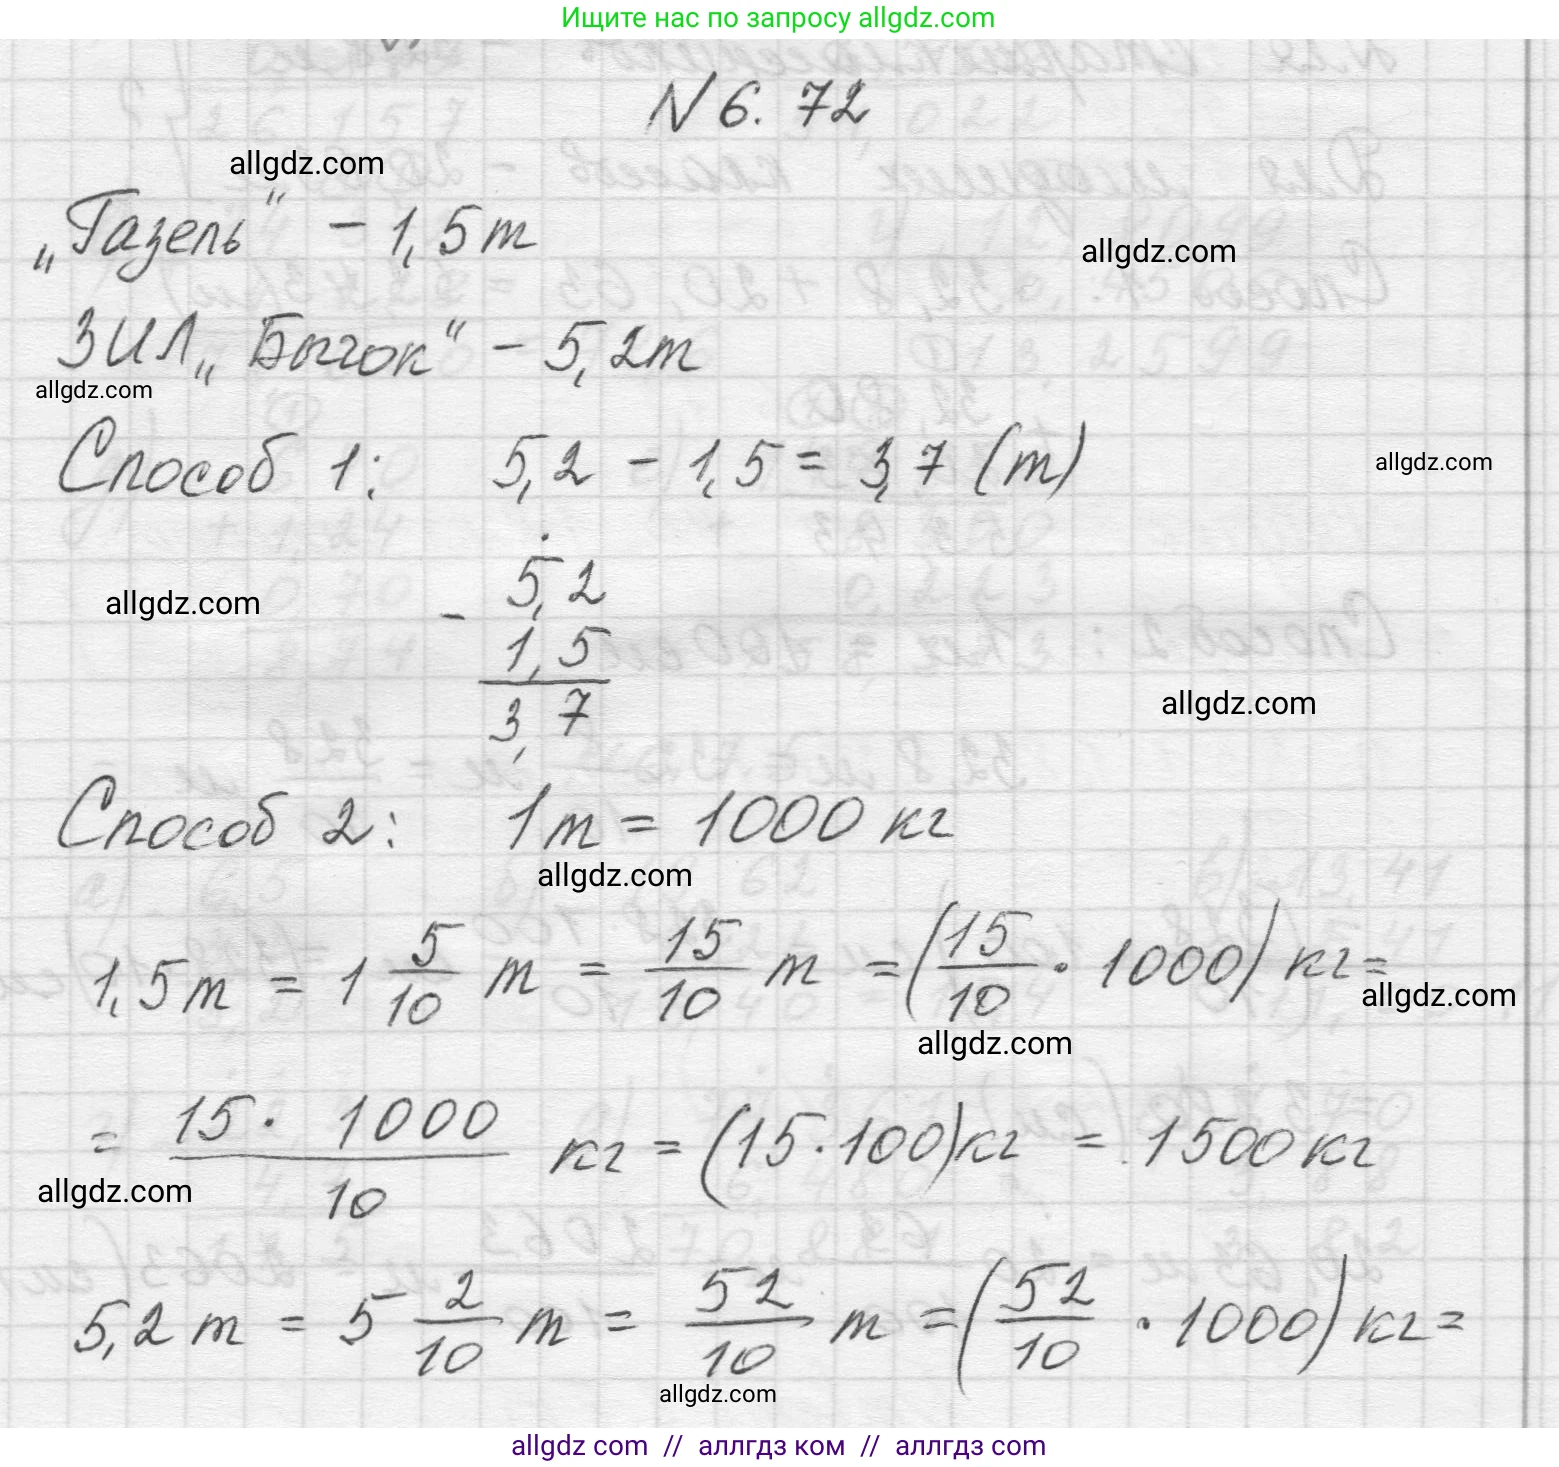 Ищите нас по запросу allgdz.com
N 6. 72
allgdz.com
„Газель“ – 1,5 т
allgdz.com
ЗИЛ „Бычок“ – 5,2 т
allgdz.com
Способ 1: 5,2 – 1,5 = 3,7 (т)
allgdz.com
5,2
allgdz.com
–
1,5
3,7
allgdz.com
Способ 2: 1 т = 1000 кг
allgdz.com
1,5 т = 1 5/10 т = 15/10 т = (15/10 · 1000) кг =
allgdz.com
allgdz.com
= 15 · 1000/10 кг = (15 · 100) кг = 1500 кг
allgdz.com
5,2 т = 5 2/10 т = 52/10 т = (52/10 · 1000) кг =
allgdz.com
allgdz com // аллгдз ком // аллгдз com